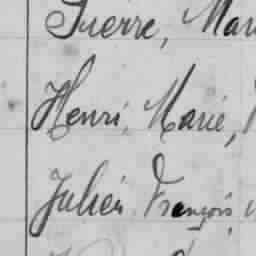 Pierre, Mari
Henri, Marie,
Julien François